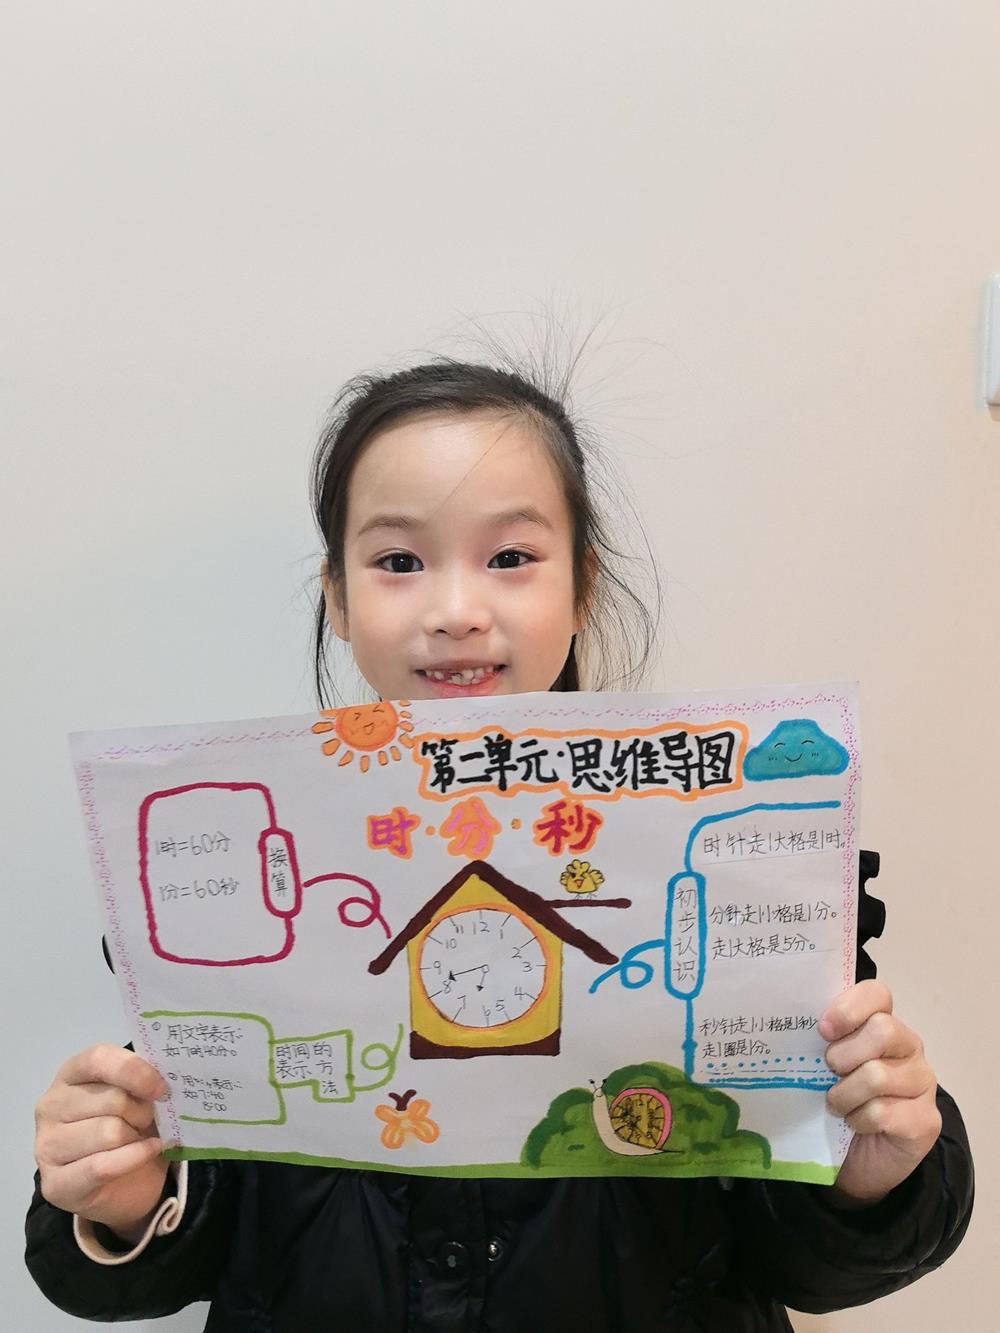 第二单元·思维导图
时·分·秒
换算
1时=60分
1分=60秒
初步认识
时针走1大格是1时。
分针走1小格是1分。
走1大格是5分。
秒针走1小格是1秒
走1圈是1分。
时间的
表示方
法
① 用文字表示:
如7时40分。
② 用":"表示:
如7:40
8:00
12
11
10
9
8
7
6
5
4
3
2